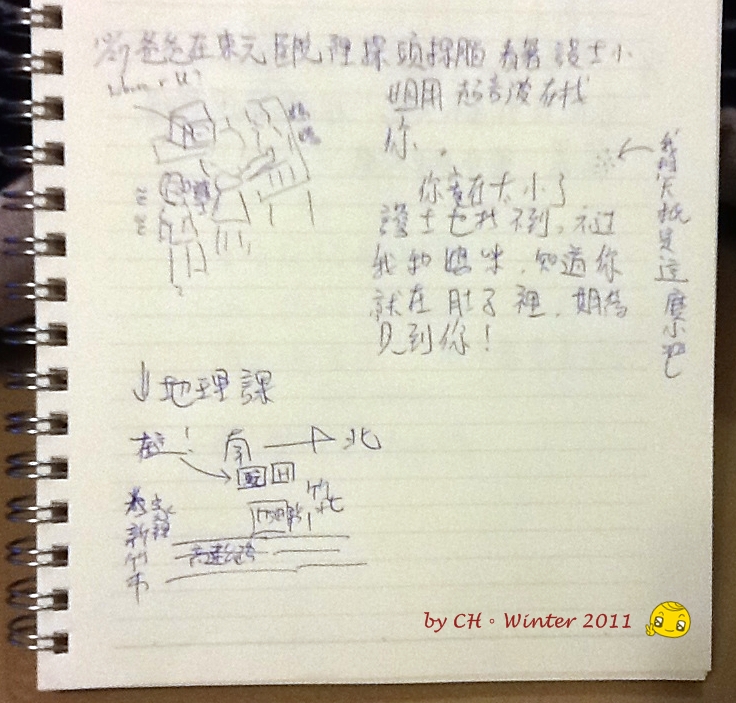 爸爸在東元醫院裡探頭探腦 看著護士小
姐用超音波在找
你。
你實在太小了
護士也找不到,不過
我和媽咪,知道你
就在肚子裡,期待
見到你!
我明天抵是這麼小吧
媽媽
↓地理課
在這! 南 → 北
竹北
新竹市
高速公路
by CH。Winter 2011